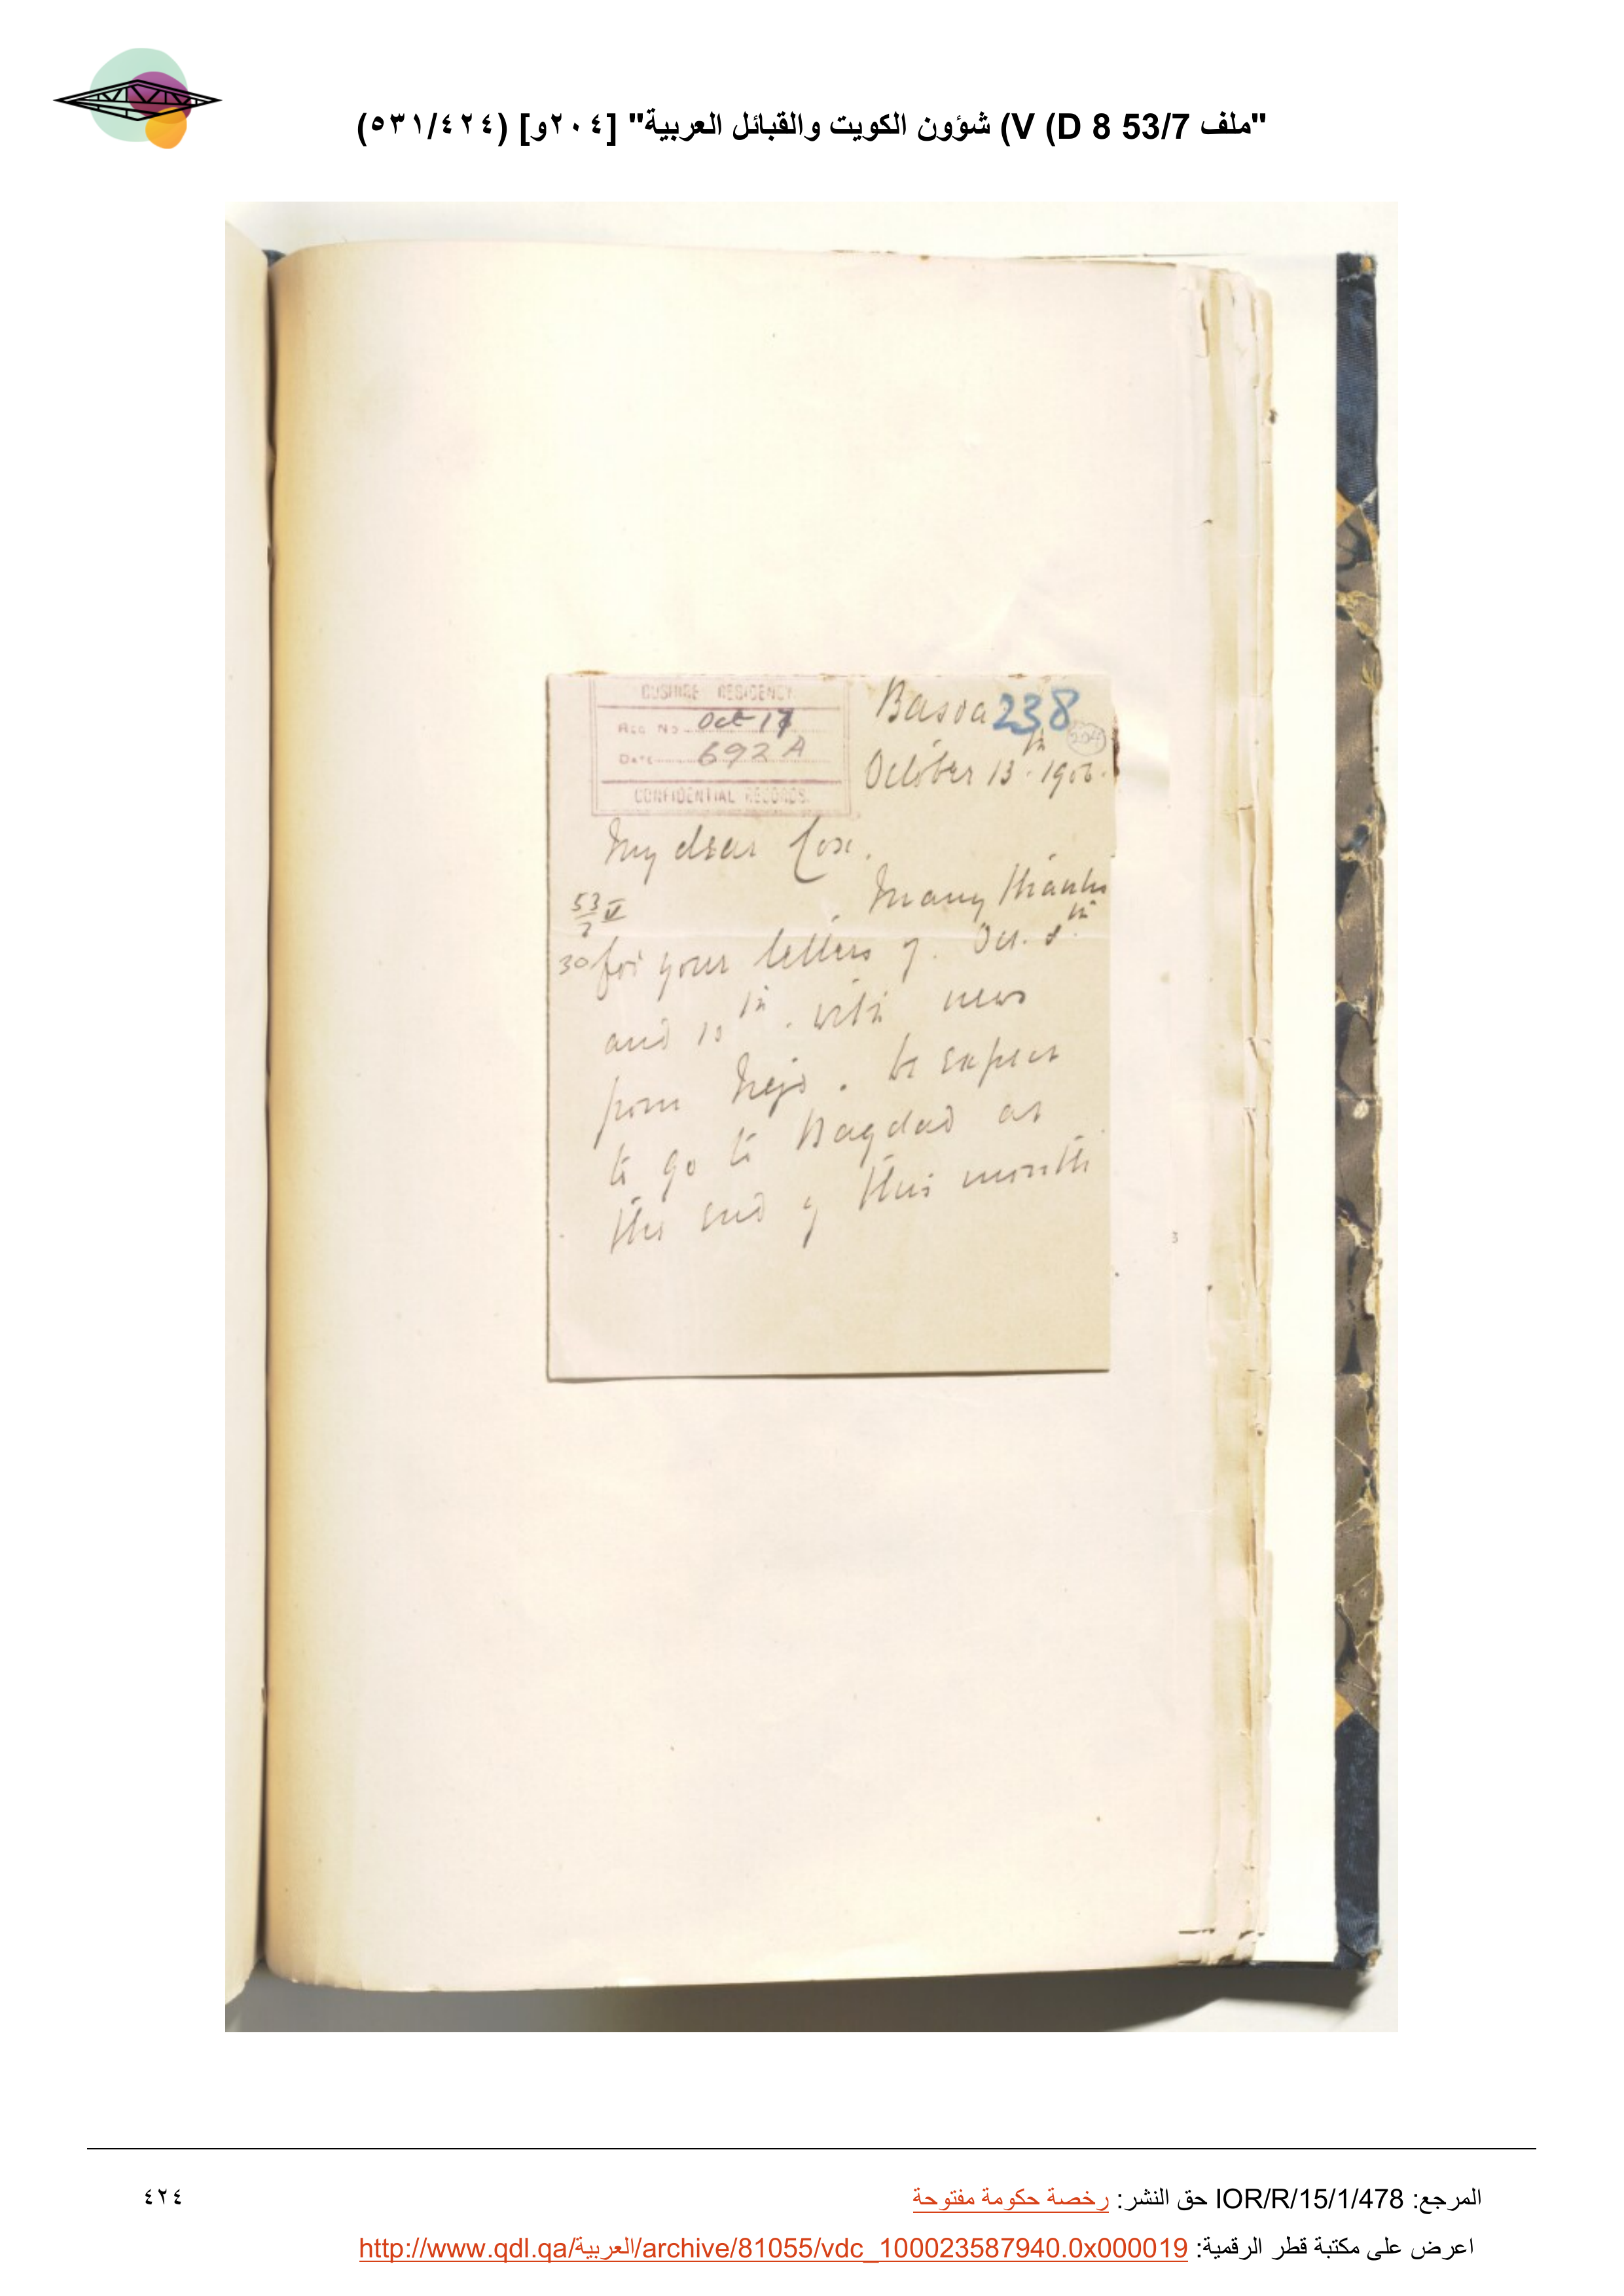 "ملف 53/7 V (D 8) شؤون الكويت والقبائل العربية" [٢٠٤و] (٥٣١/٤٢٤)
BUSHIRE RESIDENCY.
Reg. No. Oct 17
Date 692 A
CONFIDENTIAL RECORDS.
Basra 238
204
October 13th 1906.
My dear Cox.
Many thanks
53/7 V
30 for your letters of Oct. 8th
and 10th. with news
from Nejd. We expect
to go to Bagdad at
the end of this month
3
المرجع: IOR/R/15/1/478 حق النشر: رخصة حكومة مفتوحة
٤٢٤
اعرض على مكتبة قطر الرقمية: http://www.qdl.qa/العربية/archive/81055/vdc_100023587940.0x000019